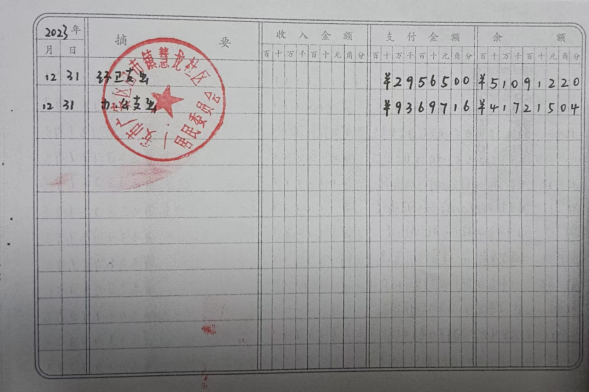 2023年 摘 要 收入金额 支付金额 余 额
月 日 百十万千百十元角分 百十万千百十元角分 百十万千百十元角分
12 31 环卫支出 ¥2956500 ¥51091220
12 31 办公支出 ¥9369716 ¥41721504
市镇慧龙社区
居民委员会